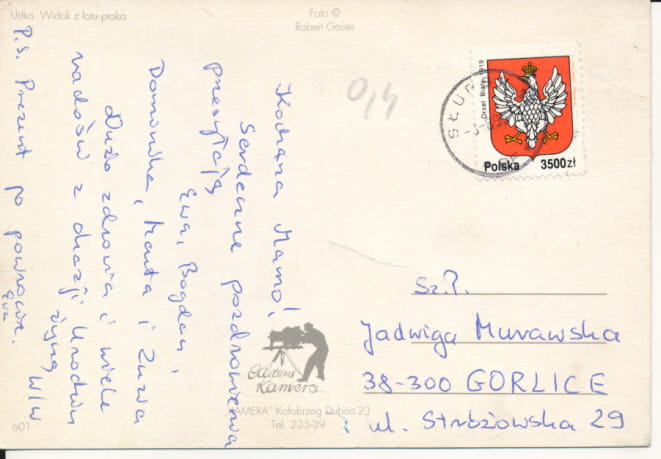 Ustka. Widok z lotu ptaka
Foto ©
Robert Gauer
0,4
Orzeł Biały 1919
Polska 3500zł
SŁUP
Kochana Mamo!
Serdeczne pozdrowienia
przesyłają
Ewa, Bogdan,
Dominika, Marta i Zuzia
Dużo zdrowia i wiele
radości z okazji Urodzin
życzą W/W
P.S. Prezent po powrocie.
Ewa
Sz.P.
Jadwiga Murawska
38-300 GORLICE
ul. Stróżowska 29
Editions
Kamera
"KAMERA" Kołobrzeg Dubois 23
Tel. 235-39
601